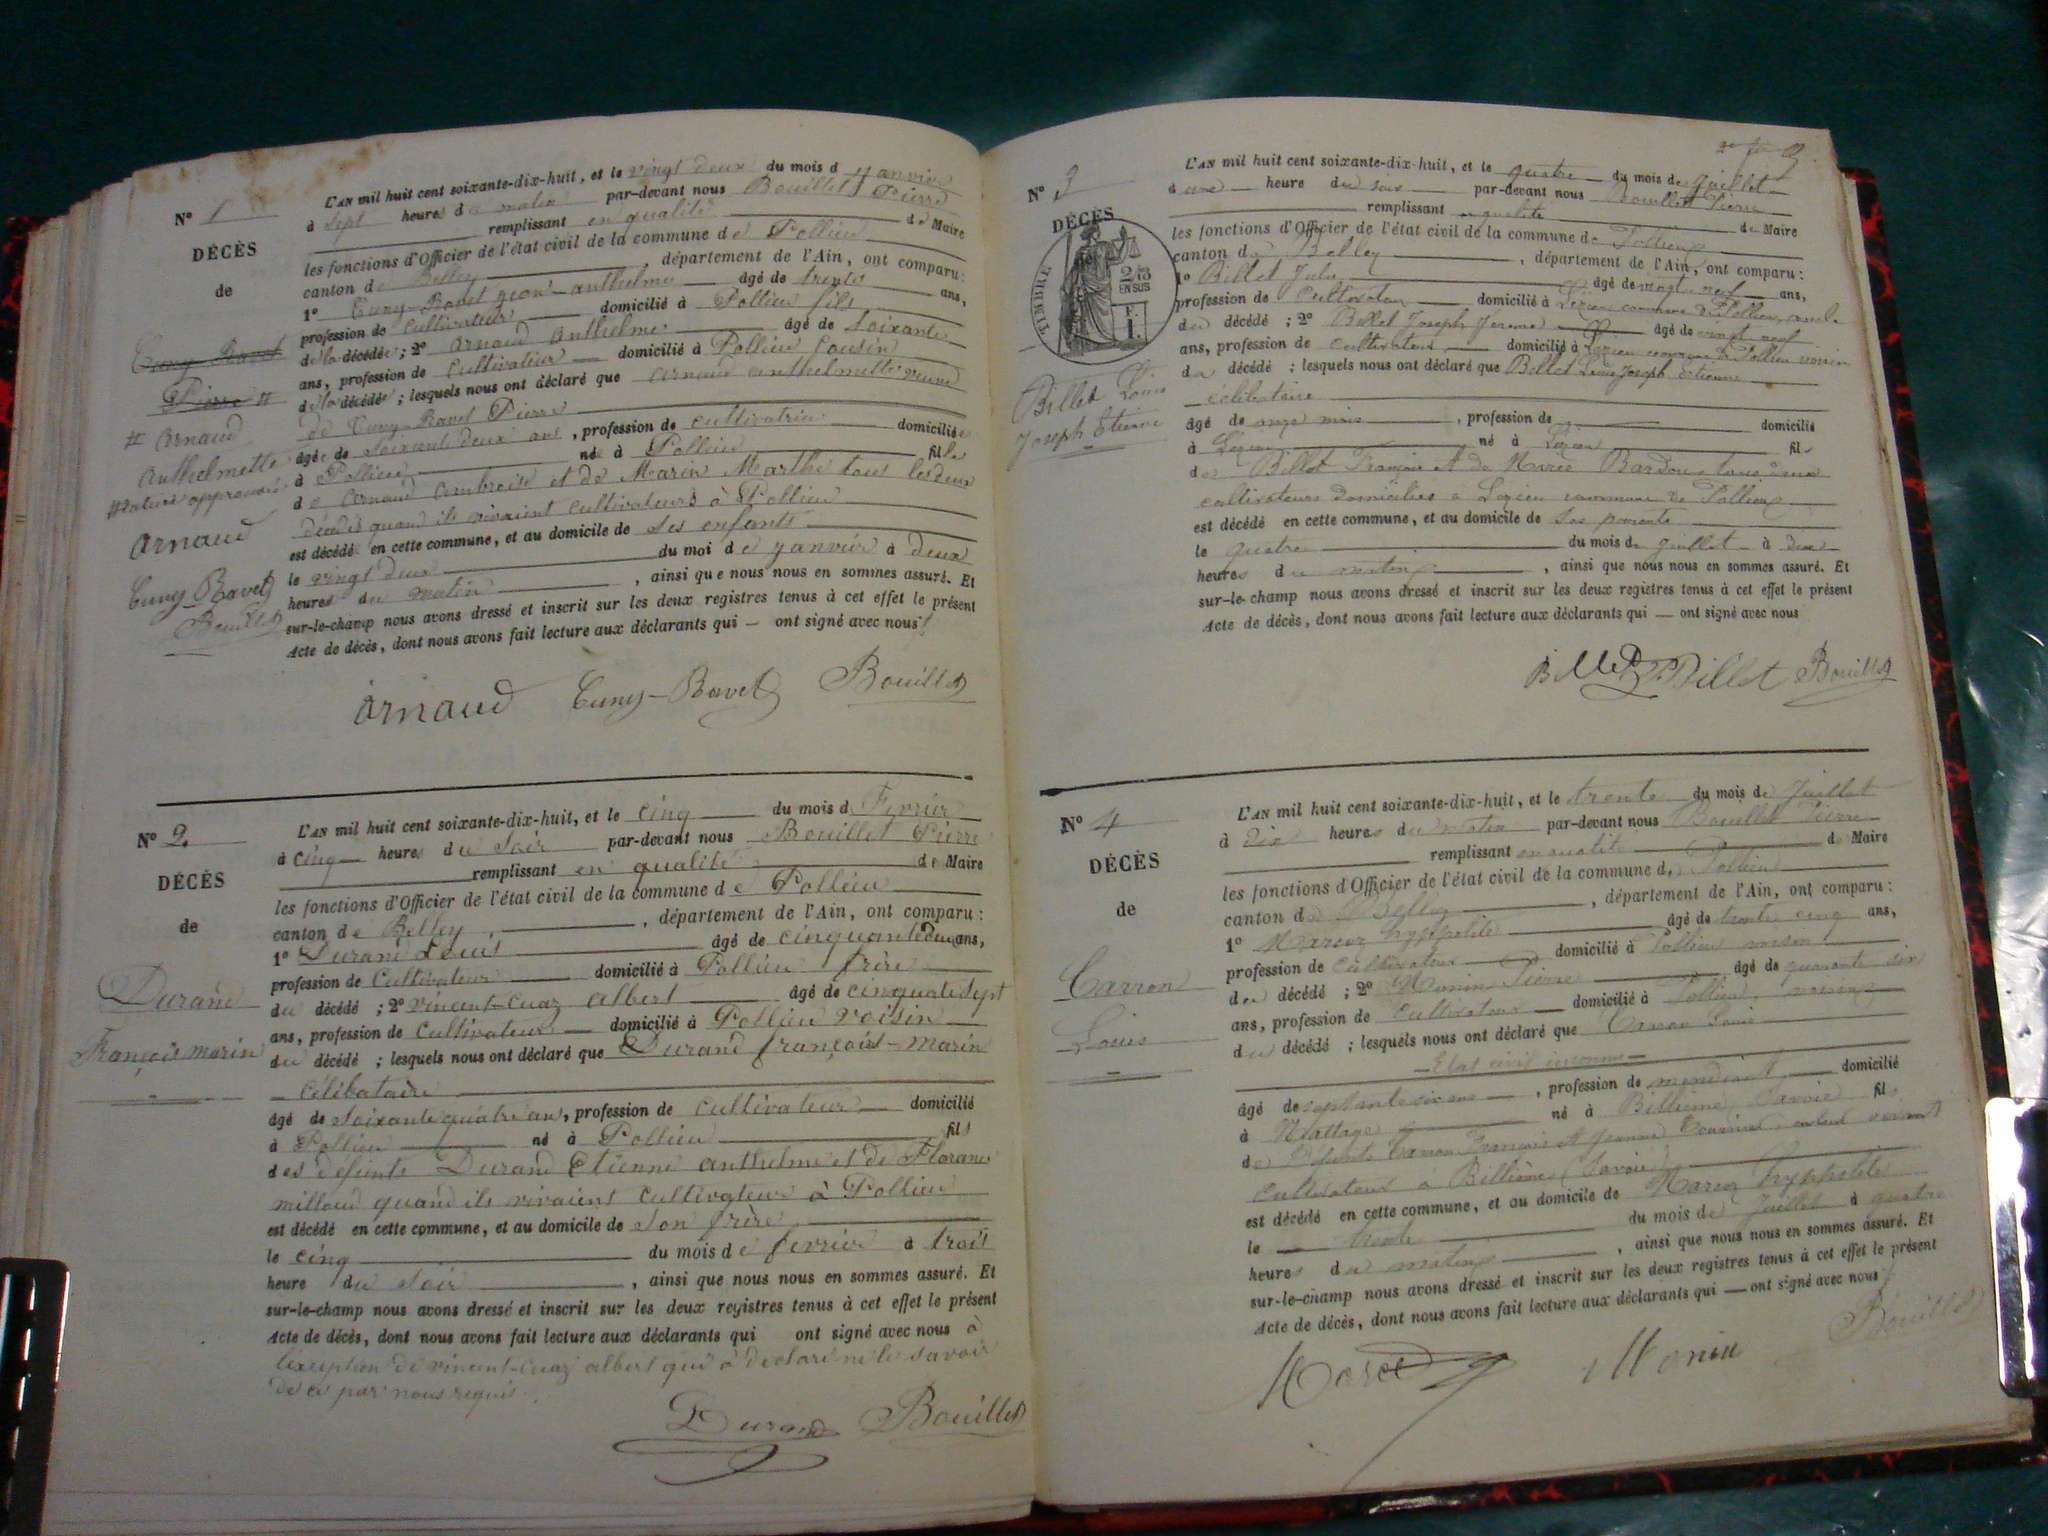 N° 1
DÉCÈS
de
Cuny-Ravet
Pierre #
# Arnaud
Anthelmette
# Rature approuvée
Arnaud
Cuny-Ravet
Bouillet
L'AN mil huit cent soixante-dix-huit, et le vingt deux du mois d janvier
à sept heures du matin par-devant nous Bouillet Pierre
remplissant en qualité de Maire
les fonctions d'Officier de l'état civil de la commune de Pollieu
canton de Belley, département de l'Ain, ont comparu :
1° Cuny-Ravet anthelme âgé de trente ans,
profession de Cultivateur domicilié à Pollieu fils
de la décédée ; 2° Arnaud Anthelme âgé de Soixante
ans, profession de Cultivateur domicilié à Pollieu Cousin
de la décédée ; lesquels nous ont déclaré que Arnaud Anthelmette veuve
de Cuny-Ravet Pierre
âgée de soixante deux ans, profession de cultivatrice domiciliée
à Pollieu née à Pollieu fille
d Arnaud Ambroise et de Marin Marthe tous les deux
décédés quand ils vivaient cultivateurs à Pollieu
est décédé en cette commune, et au domicile de ses enfants
le vingt deux du moi de janvier à deux
heures du matin, ainsi que nous nous en sommes assuré. Et
sur-le-champ nous avons dressé et inscrit sur les deux registres tenus à cet effet le présent
Acte de décès, dont nous avons fait lecture aux déclarants qui — ont signé avec nous
Arnaud Cuny-Ravet Bouillet
N° 2
DÉCÈS
de
Durand
François marin
L'AN mil huit cent soixante-dix-huit, et le cinq du mois d Février
à cinq heures du soir par-devant nous Bouillet Pierre
remplissant en qualité de Maire
les fonctions d'Officier de l'état civil de la commune de Pollieu
canton de Belley, département de l'Ain, ont comparu :
1° Durand Louis âgé de cinquante ans,
profession de Cultivateur domicilié à Pollieu frère
du décédé ; 2° Vincent-Cuaz Albert âgé de cinquate sept
ans, profession de Cultivateur domicilié à Pollieu voisin
du décédé ; lesquels nous ont déclaré que Durand françois-marin
Célibataire
âgé de soixante quatre ans, profession de cultivateur domicilié
à Pollieu né à Pollieu fils
des défunts Durand Etienne Anthelme et de
millaud quand ils vivaient cultivateur à Pollieu
est décédé en cette commune, et au domicile de son frère
le cinq du mois de fevrier à trois
heure du soir, ainsi que nous nous en sommes assuré. Et
sur-le-champ nous avons dressé et inscrit sur les deux registres tenus à cet effet le présent
Acte de décès, dont nous avons fait lecture aux déclarants qui ont signé avec nous à
l'exception de Vincent-Cuaz albert qui à déclaré ne le savoir
de ce par nous requis.
Durand Bouillet
N° 3
DÉCÈS
TIMBRE
2/10
EN SUS
F.
1.
Billet Louis
Joseph Etienne
L'AN mil huit cent soixante-dix-huit, et le quatre du mois de Juillet
à une heure du soir par-devant nous Bouillet Pierre
remplissant en qualité de Maire
les fonctions d'Officier de l'état civil de la commune de Pollieu
canton de Belley, département de l'Ain, ont comparu :
1° Billet Jules âgé de vingt neuf ans,
profession de cultivateur domicilié à commune de Pollieu oncle
du décédé ; 2° Billet Joseph Jerome âgé de vingt neuf
ans, profession de cultivateur domicilié à commune de Pollieu voisin
du décédé ; lesquels nous ont déclaré que Billet Louis Joseph étienne
célibataire
âgé de onze mois, profession de domicilié
à né à fils
de Billet François et de Marie tous deux
cultivateurs domiciliés à commune de Pollieu
est décédé en cette commune, et au domicile de ses parents
le quatre du mois de juillet à dix
heures du matin, ainsi que nous nous en sommes assuré. Et
sur-le-champ nous avons dressé et inscrit sur les deux registres tenus à cet effet le présent
Acte de décès, dont nous avons fait lecture aux déclarants qui — ont signé avec nous
Billet Billet Bouillet
N° 4
DÉCÈS
de
Carron
Louis
L'AN mil huit cent soixante-dix-huit, et le trente du mois de Juillet
à dix heures du matin par-devant nous Bouillet Pierre
remplissant en qualité de Maire
les fonctions d'Officier de l'état civil de la commune de Pollieu
canton de Belley, département de l'Ain, ont comparu :
1° hyppolite âgé de trente cinq ans,
profession de cultivateur domicilié à Pollieu voisin
du décédé ; 2° Monin Pierre âgé de quarante six
ans, profession de Cultivateur domicilié à Pollieu voisin
du décédé ; lesquels nous ont déclaré que Carron Louis
Etat civil inconnu
âgé de septante six ans, profession de mendiant domicilié
à né à Billième Savoie fils
de Défunts Carron François et quand vivaient
Cultivateurs à Billième (Savoie)
est décédé en cette commune, et au domicile de hyppolite
le trente du mois de Juillet à quatre
heures du matin, ainsi que nous nous en sommes assuré. Et
sur-le-champ nous avons dressé et inscrit sur les deux registres tenus à cet effet le présent
Acte de décès, dont nous avons fait lecture aux déclarants qui — ont signé avec nous
Monin Bouillet